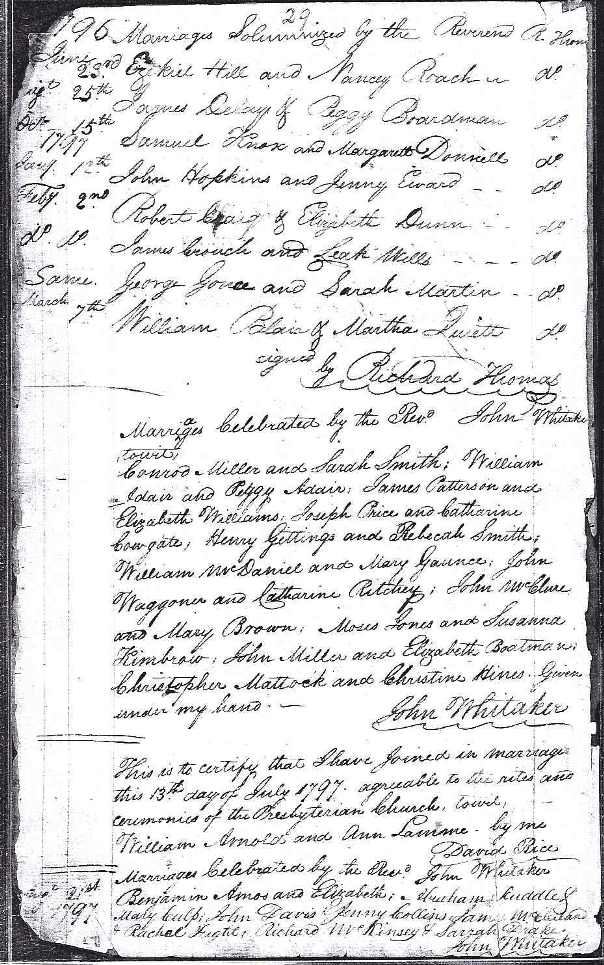 29
1796 Marriages Solemnized by the Reverend R. Thom
June 23rd Ezekiel Hill and Nancy Roach do.
Augt 25th James Delay & Peggy Boardman do.
Octr 15th Samuel Knox and Margarett Donnell do.
1797
Jany. 12th John Hopkins and Jenny Eward - - do.
Feby. 2nd Robert Craig & Elizabeth Dunn - - do.
do. do. James Crouch and Leah Wills - - - - do.
Same. George Gouce and Sarah Martin - - do.
March 7th William Blair & Martha do.
signed by Richard Thomas
Marriages Celebrated by the Revd. John Whitaker
towit,
Conrod Miller and Sarah Smith; William
Adair and Peggy Adair; James Patterson and
Elizabeth Williams; Joseph Price and Catharine
Cowgate; Henry Gittings and Rebecah Smith;
William McDaniel and Mary Gaunce; John
Waggoner and Catharine Ritchey; John McClure
and Mary Brown; Moses Jones and Susanna
Kimbrow; John Miller and Elizabeth Boatman;
Christopher Mattock and Christine Hines. Given
under my hand. -
John Whitaker
This is to certify that I have Joined in marriage
this 13th day of July 1797. agreeable to the rites and
ceremonies of the Presbyterian Church, towit,
William Arnold and Ann Lamme - by me
David Rice
Marriages Celebrated by the Revd. John Whitaker
21st Benjamin Amos and Elizabeth; Abraham Ruddle &
1797 Mary Culp; John Davis Jenny Collins James
& Rachel Fight; Richard McKinsey & Sarah Drake
John Whitaker